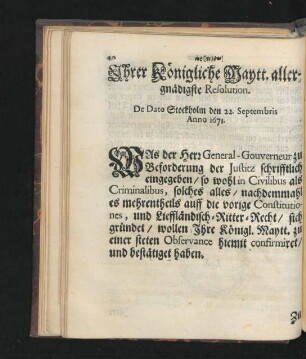 40
Ihrer Königliche Maytt. aller-
gnädigste Resolution.
De Dato Stockholm den 22. Septembris
Anno 1671.
WAs der Herr General-Gouverneur zu
Beforderung der Justitz schrifftlich
eingegeben / so wohl in Civilibus als
Criminalibus, solches alles / nachdemmahl
es mehrentheils auff die vorige Constitutio-
nes, und Liefländisch-Ritter-Recht / sich
gründet / wollen Ihre Königl. Maytt. zu
einer steten Observance hiemit confirmiret /
und bestätiget haben.